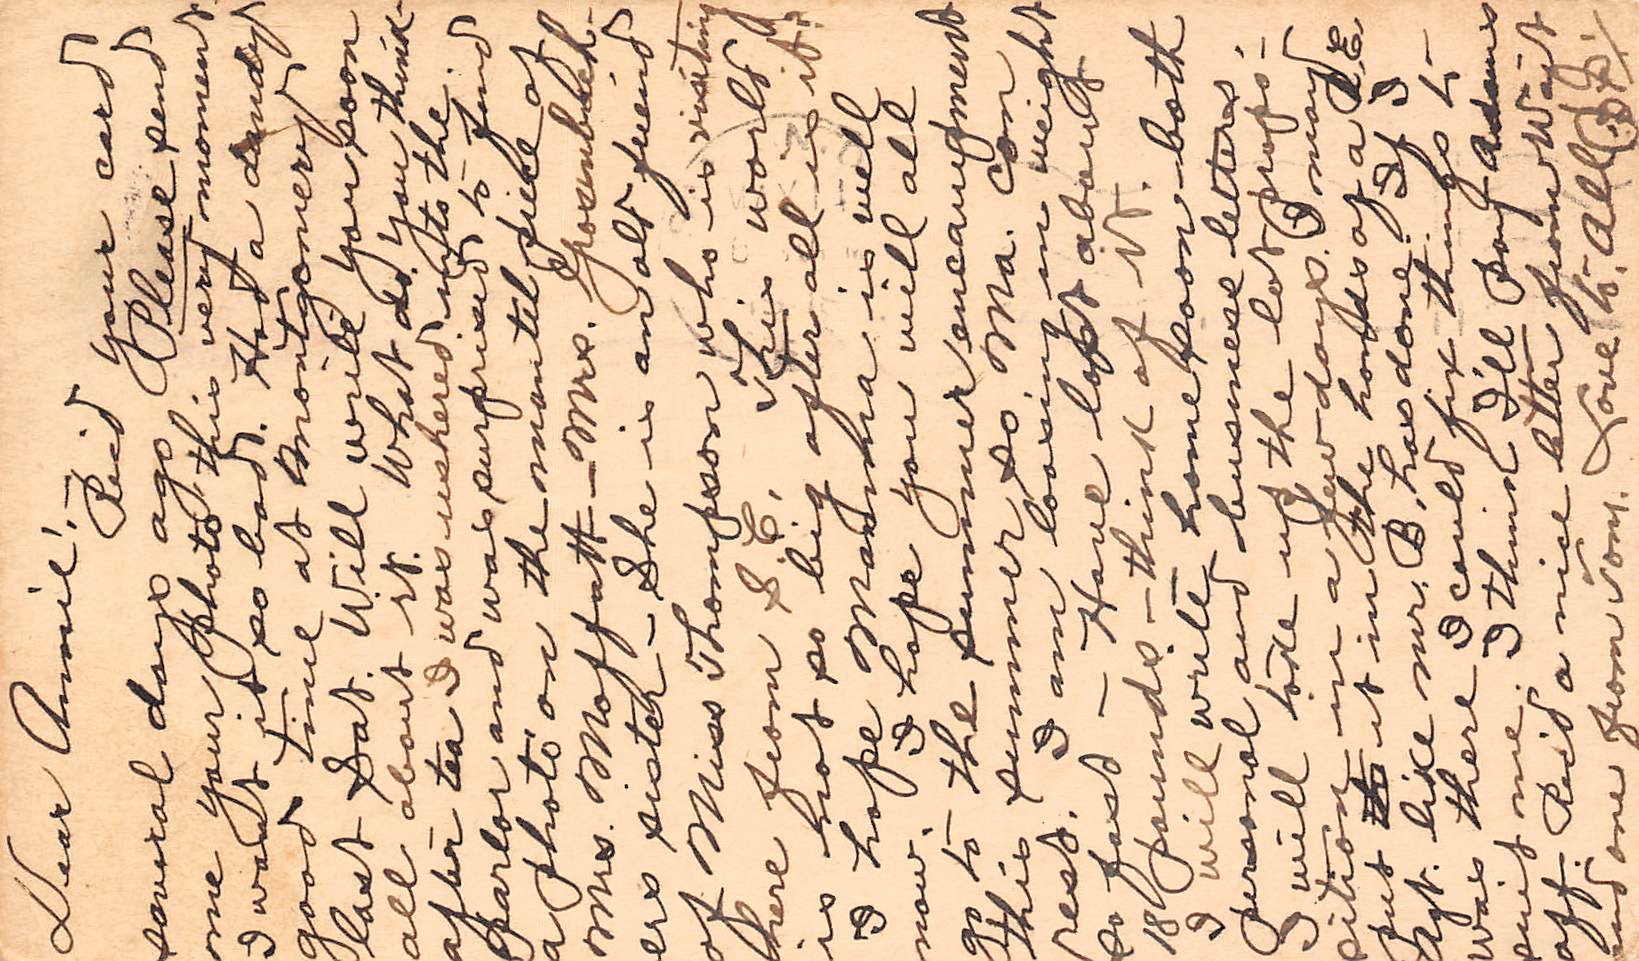 Dear Annie:-
Recd your card
saveral days ago. Please send
one your photo this very moment
I want it so bad. Had a dandy
good time at Montgomery
last Sat. Will write you soon
all about it. What do you think-
after tea I was ushered into the
parlor and was surprised to find
a photo on the mantel piece of
Mrs. Moffatt - Mrs. Grosenbach-
ers sister - She is an old friend
of Miss Thompson who is visiting
here from S.C. This world
is not so big after all is it?
I hope Mamma is well
now. I hope you will all
go to the summer encampment
this summer so Ma. can
rest. I am loosing in weight
so fast - Have lost about
18 pounds - think of it.
I will write home soon both
personal and business letters.
I will take up the lot prop-
sition in a few days. I may
put it in the hands of a R E
Agt. like Mr. B. has done. If I
was there I could fix things to
suit me. I think I'll pay Adams
off. Recd a nice letter from Wait
and one from Tom. Love to all